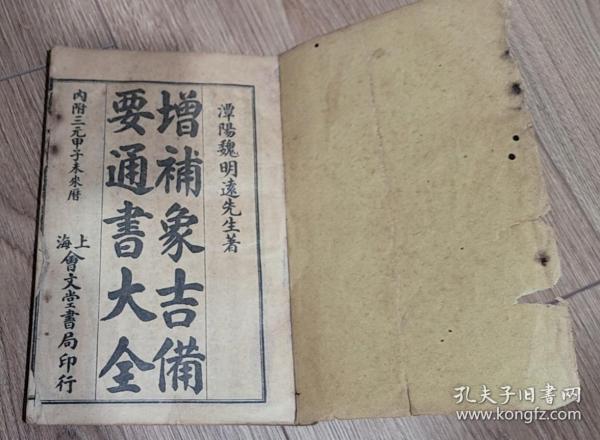 潭陽魏明遠先生著
增補象吉備
要通書大全
內附三元甲子未來曆
上海會文堂書局印行
孔夫子旧书网
www.kongfz.com